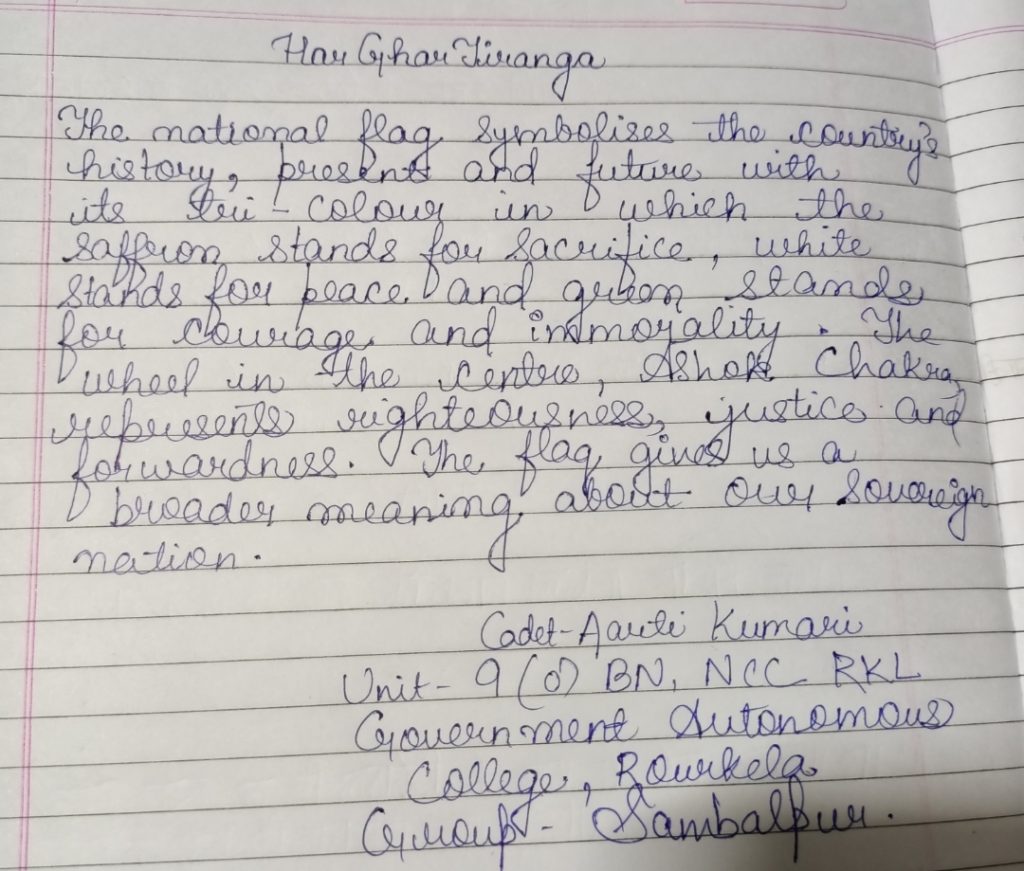 Har Ghar Tiranga
The national flag symbolises the country's
history, present and future with
its tri-colour in which the
saffron stands for sacrifice, white
stands for peace and green stands
for courage and immorality. The
wheel in the centre, Ashok Chakra
represents righteousness, justice and
forwardness. The flag gives us a
broader meaning about our sovereign
nation.
Cadet-Aarti Kumari
Unit- 9 (O) BN, NCC RKL
Government Autonomous
College, Rourkela
Group - Sambalpur.